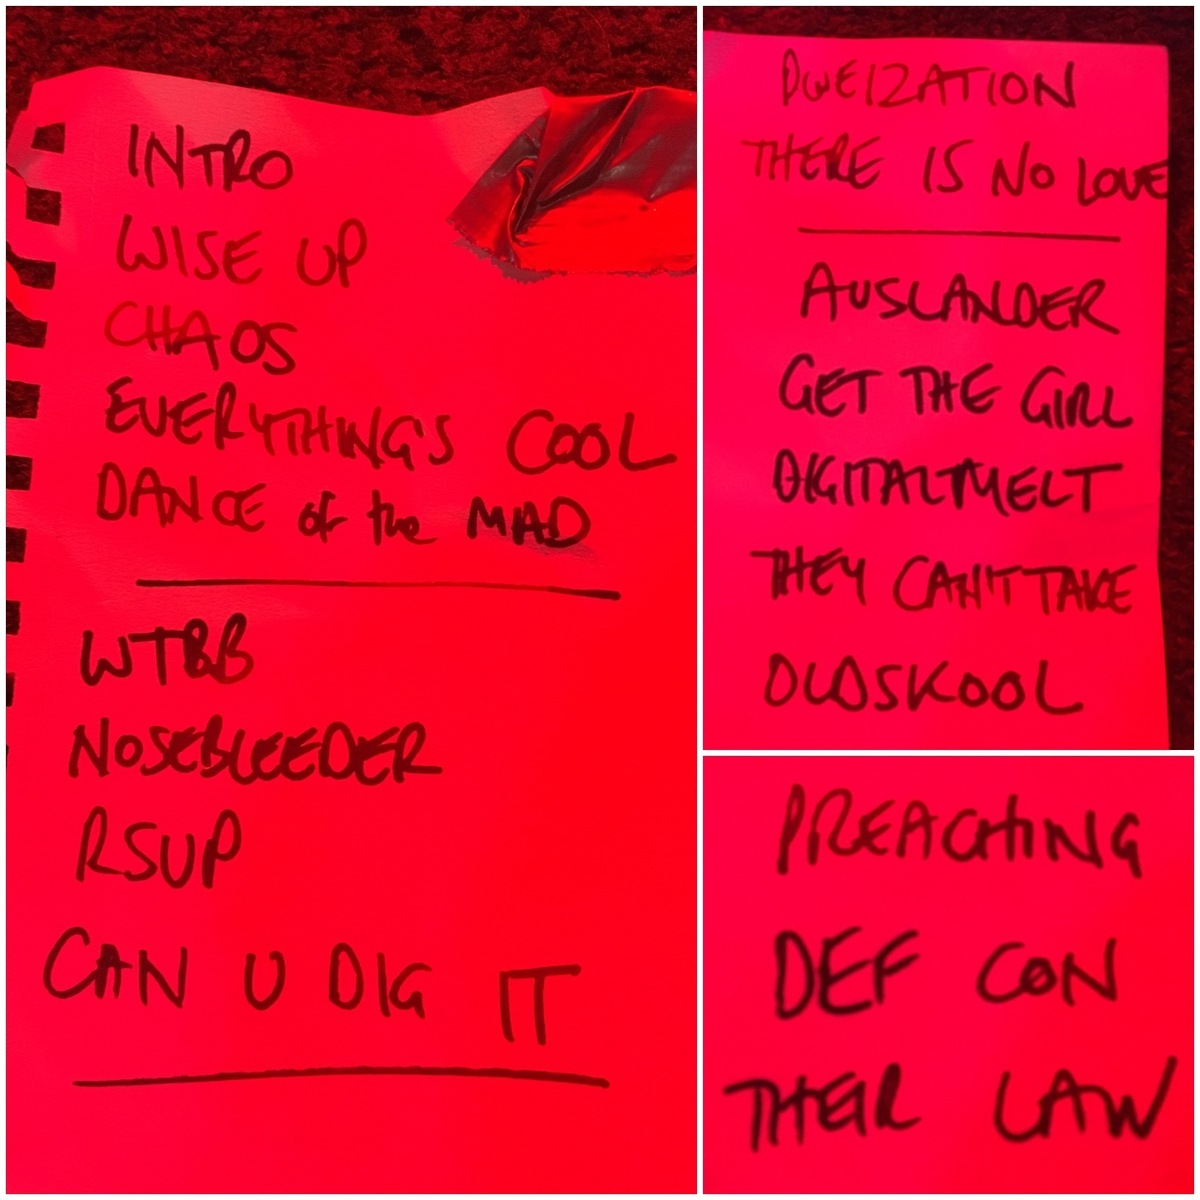 INTRO
WISE UP
CHAOS
EVERYTHING'S COOL
DANCE of the MAD
WTBB
NOSEBLEEDER
RSUP
CAN U DIG IT
PWEIZATION
THERE IS NO LOVE
AUSLANDER
GET THE GIRL
DIGITALMELT
THEY CAN'T TAKE
OLDSKOOL
PREACHING
DEF CON
THEIR LAW